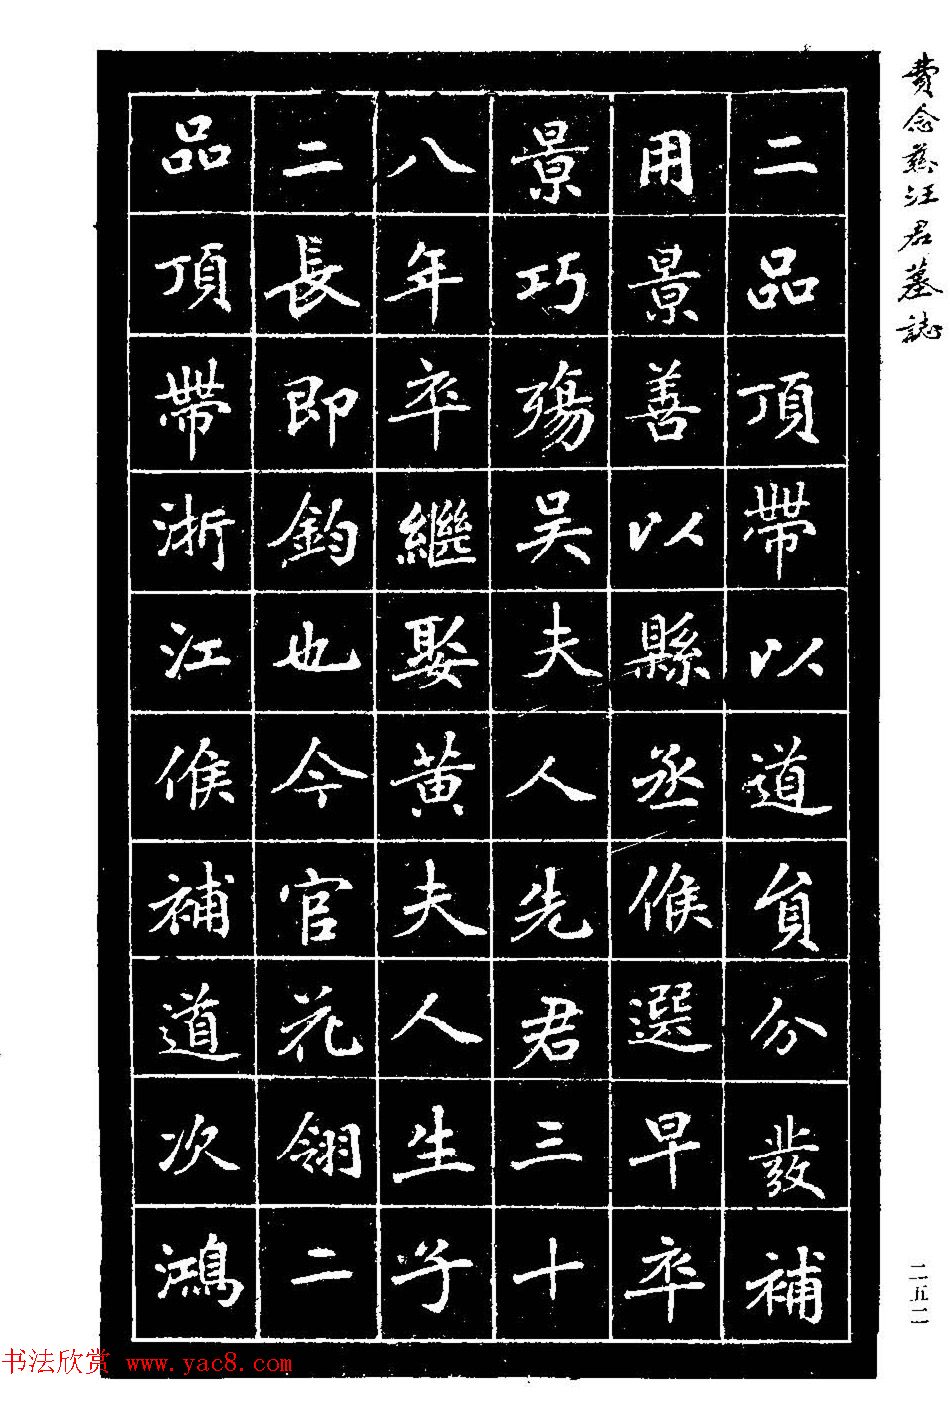 費念慈汪君墓誌
二品頂帶以道員分發補
用景善以縣丞候選早卒
景巧殤吴夫人先君三十
八年卒繼娶黄夫人生子
二長即鈞也今官花翎二
品頂帶浙江候補道次鴻
二五二
书法欣赏 www.yac8.com